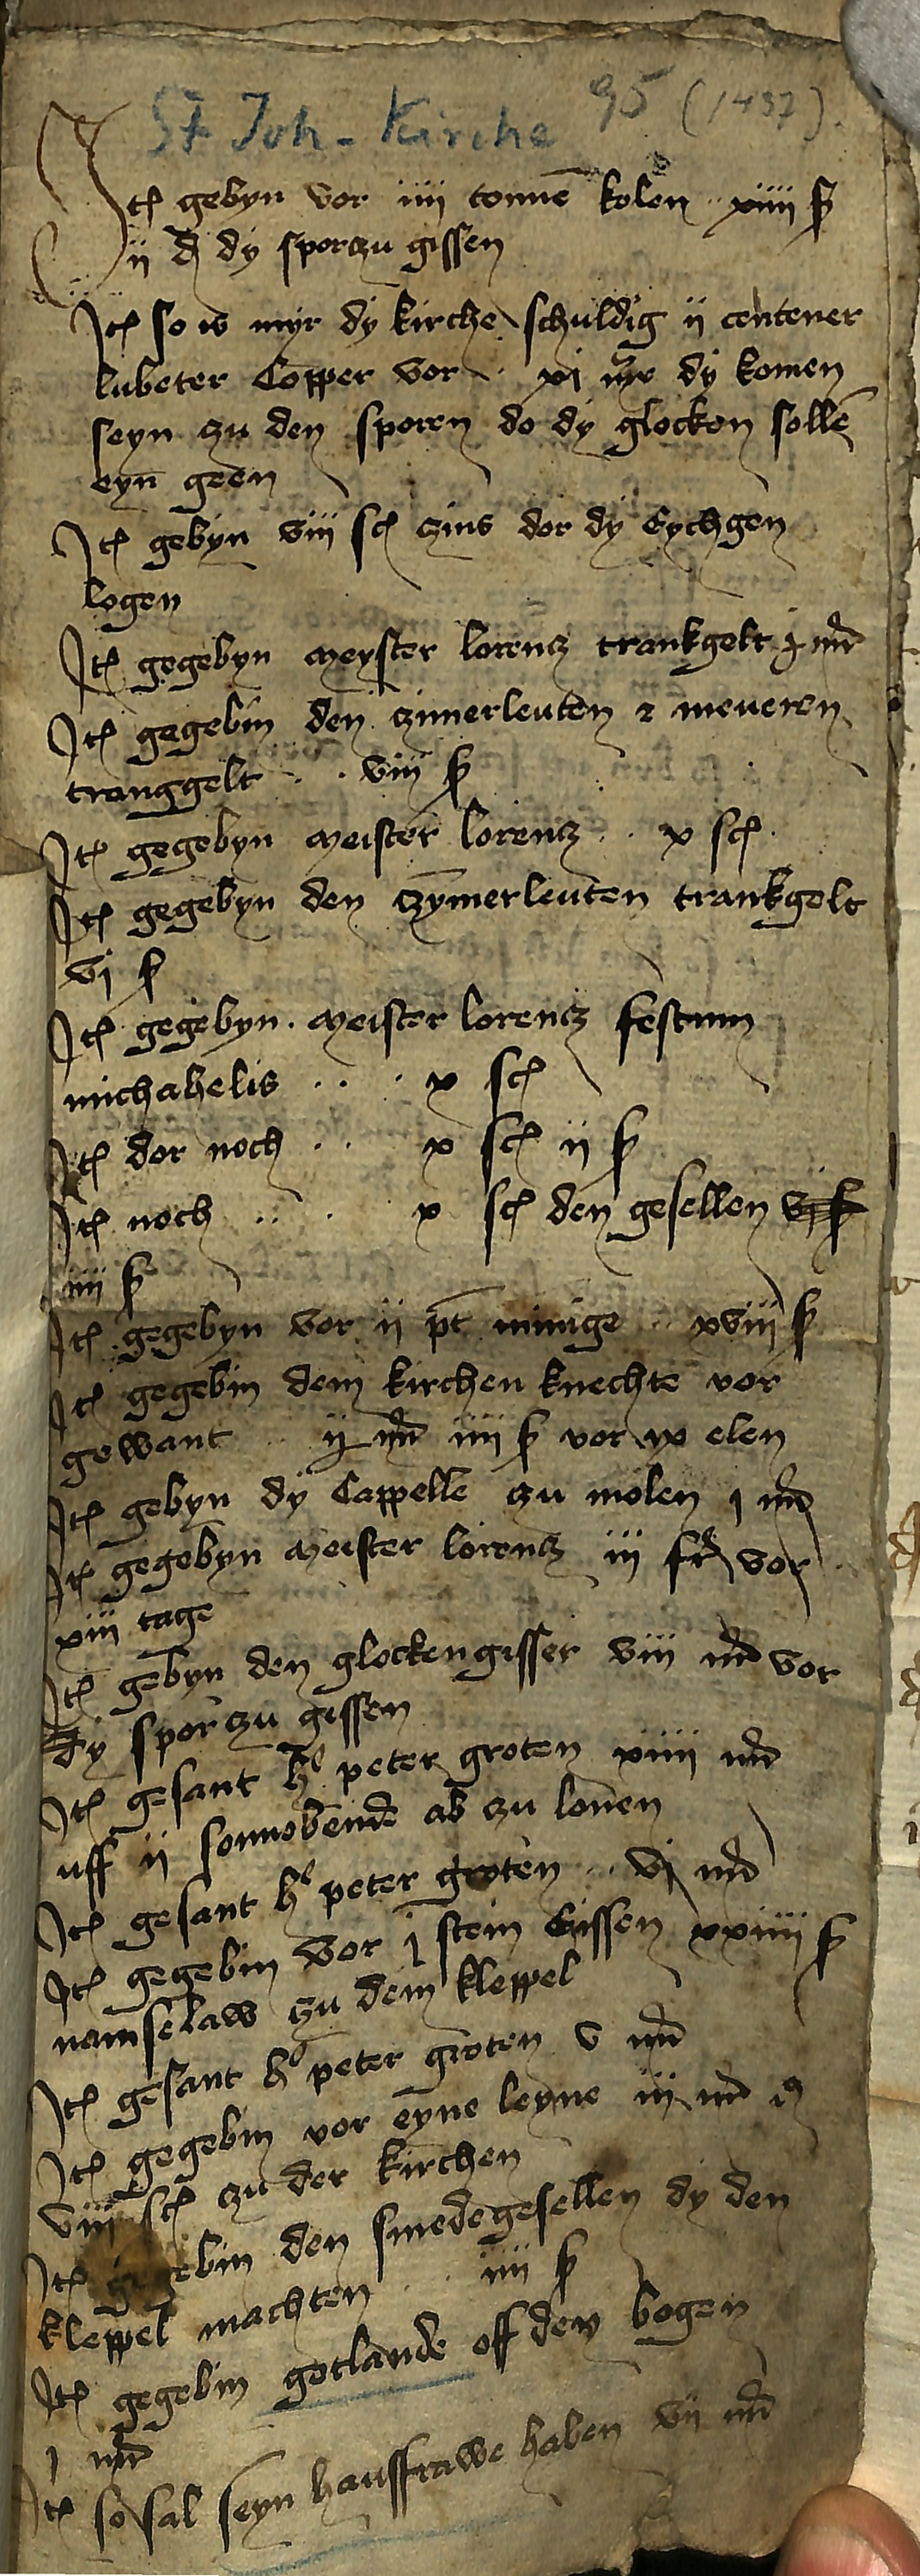 St Joh-Kirche 95 (1437).
Itē gebyn vor iiii tonnē kolen .. xiiii ß
ii d dy spor czu gissen
Itē so is myr dy kirche schuldig ii centener
lubeter Copper vor .. xi mr dy komen
seyn zu den sporen do dy glocken sollē
eyn geen
Itē gebyn viii sch zins dor dy Eychgen
logen
Itē gegebyn meyster lorencz trankgelt mr
Itē gegebin den zimerleuten meueren
tranggelt .. viii ß
Itē gegebyn meister lorencz .. x sch
Itē gegebyn den czymerleuten trankgelt
vi ß
Itē gegebyn meister lorencz festum
michahelis .... x sch
Itē dor noch .. x sch ii ß
Itē noch ... x sch den gesellen vi ß
iiii ß
Itē gegebyn vor ii pt minige .. xviii ß
Itē gegebin dem kirchen knechte vor
gewant .. mr iiii ß vor ix elen
Itē gebyn dy Cappelle zu molen i mr
Itē gegebyn meister lorencz iii frd vor
xiii tage
Itē gebyn den glockengisser viii mr vor
dy spor zu gissen
Itē gesant h' peter groten xiiii mr
uff ii sonnobende ab zu lonen
Itē gesant h' peter groten .. vi mr
Itē gegebin vor i stein Eissen xxiiii ß
namselaw zu dem kleppel
Itē gesant h' peter groten v mr
Itē gegebin vor eyne leyne iii mr
viii sch zu der kirchen
Itē gegebin den smedegesellen dy den
kleppel machten .. iiii ß
Itē gegebin gotlande off den bogen
i mr
Itē so sal seyn hausfrawe haben vii mr